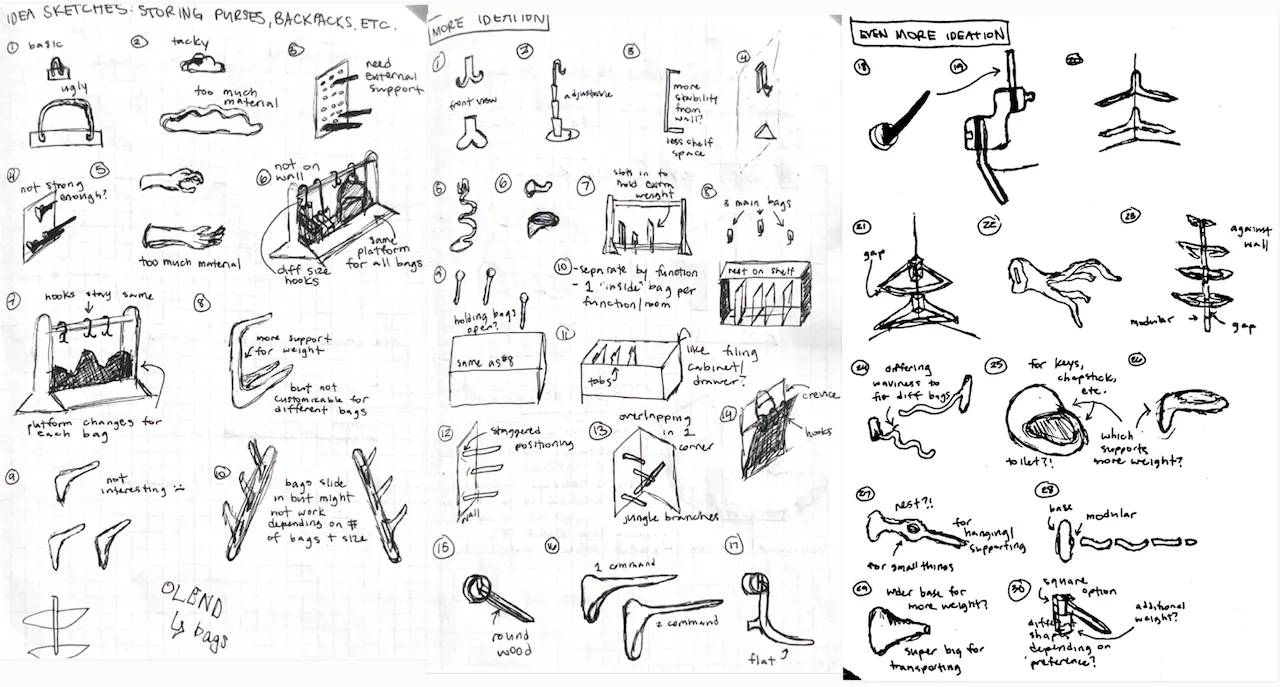 IDEA SKETCHES: STORING PURSES, BACKPACKS, ETC.
① basic
ugly
② tacky
too much
material
③
need
external
support
④
not strong
enough?
⑤
too much material
⑥ not on
wall
diff size
hooks
same
platform
for all bags
⑦ hooks stay same
platform changes for
each bag
⑧
more support
for weight
but not
customizable for
different bags
⑨
not
interesting
⑩
bags slide
in but might
not work
depending on #
of bags + size
OLEND
↳ bags
MORE IDEATION
①
front view
②
adjustable
③
more
stability
from
wall?
less shelf
space
④
⑤
⑥
⑦ slots in to
hold custom
weight
⑧
3 main bags
rest on shelf
⑨
holding bags
open?
same as #8
⑩ - seperate by function
- 1 "inside" bag per
function/room
⑪
tabs
like filing
cabinet/
drawer?
⑫ staggered
positioning
wall
⑬
overlapping
in 1
corner
jungle branches
⑭
crevice
hooks
⑮
round
wood
⑯
1 command
2 command
⑰
flat
EVEN MORE IDEATION
⑱
⑲
⑳
㉑
gap
㉒
㉓
against
wall
modular
gap
㉔ differing
waviness to
fit diff bags
㉕ for keys,
chapstick,
etc.
toilet?!
㉖
which
supports
more weight?
㉗
nest?!
for
hanging/
supporting
for small things
㉘
base
modular
㉙ wider base for
more weight?
super big for
transporting
㉚ square
option
additional
weight?
different
shapes
depending on
preference?